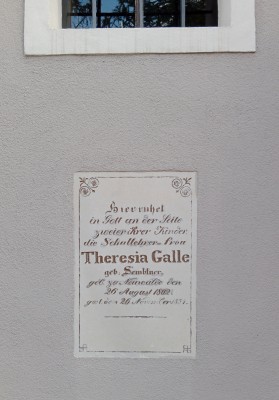 Hier ruhet
in Gott an der Seite
zweier Irer Kinder
die Schullehrers Frau
Theresia Galle
geb.
geb. zu den
26 August 1802.
gest. den 26 November